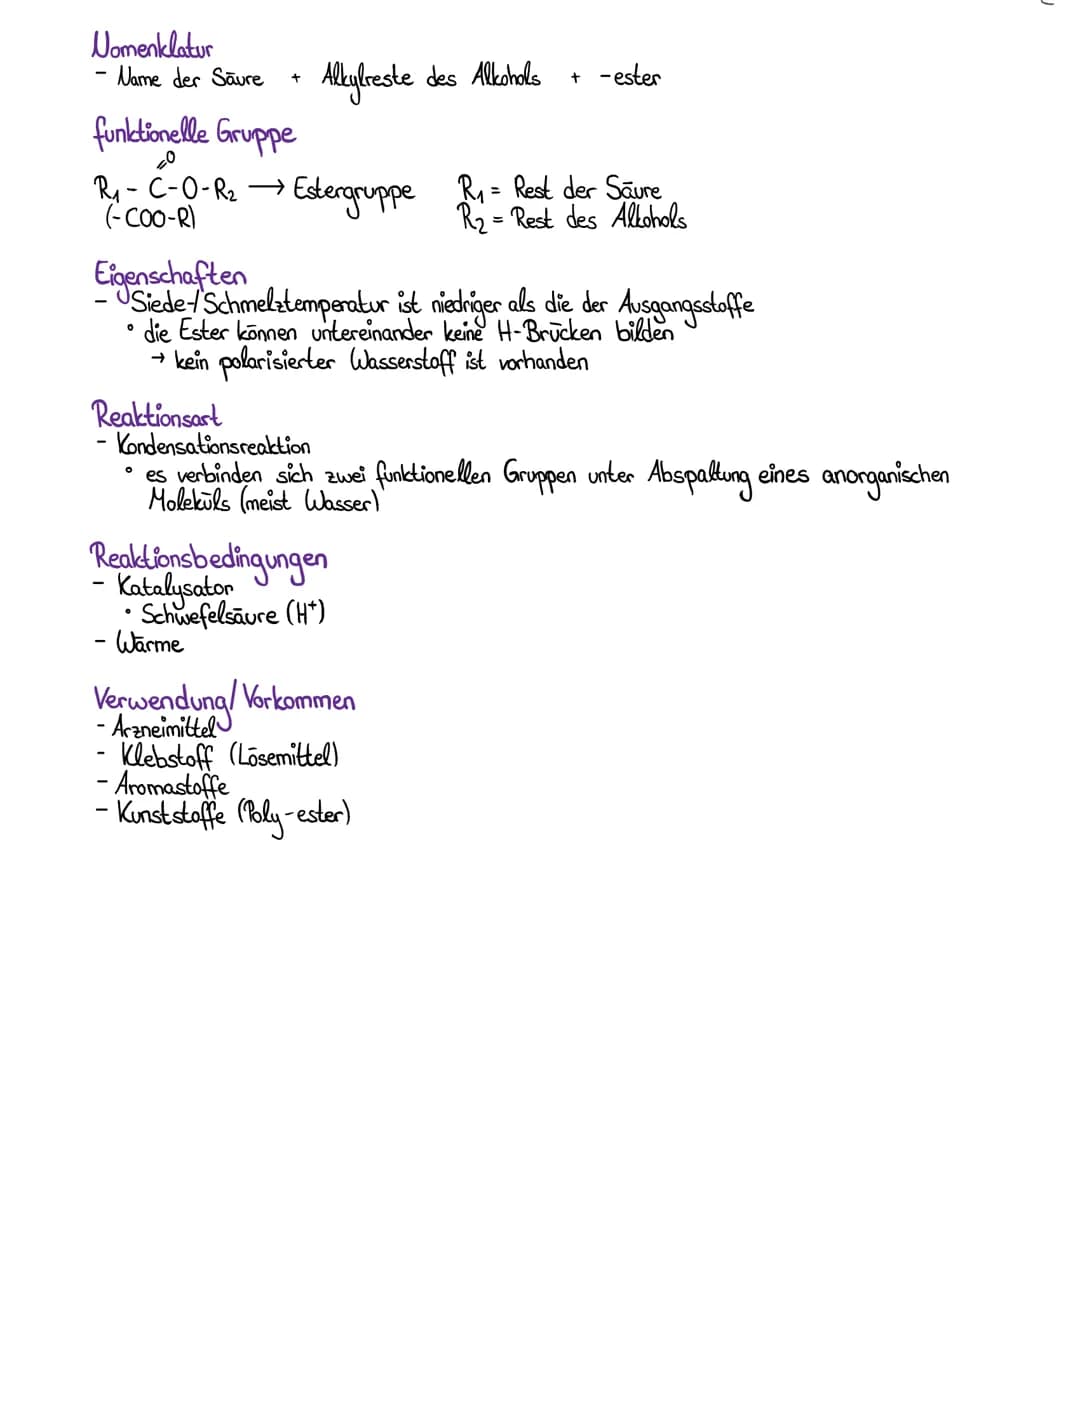 Nomenklatur
- Name der Säure + Alkylreste des Alkohols + -ester
funktionelle Gruppe
=O
R1 - C-O-R2 → Estergruppe R1 = Rest der Säure
(-COO-R) R2 = Rest des Alkohols
Eigenschaften
- Siede-/Schmelztemperatur ist niedriger als die der Ausgangsstoffe
• die Ester können untereinander keine H-Brücken bilden
→ kein polarisierter Wasserstoff ist vorhanden
Reaktionsart
- Kondensationsreaktion
• es verbinden sich zwei funktionellen Gruppen unter Abspaltung eines anorganischen
Moleküls (meist Wasser)
Reaktionsbedingungen
- Katalysator
• Schwefelsäure (H⁺)
- Wärme
Verwendung/Vorkommen
- Arzneimittel
- Klebstoff (Lösemittel)
- Aromastoffe
- Kunststoffe (Poly-ester)